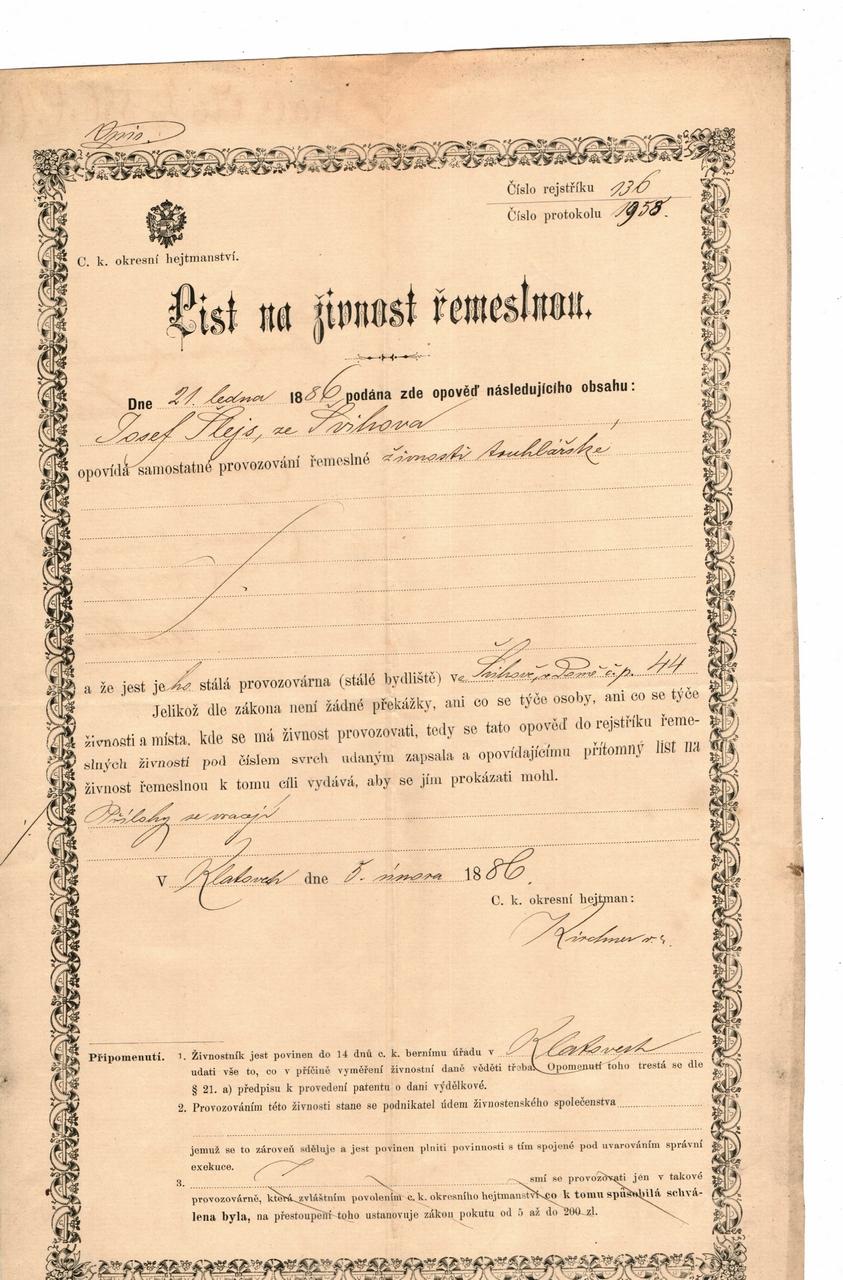 Opis.
Číslo rejstříku 136
Číslo protokolu 1958.
C. k. okresní hejtmanství.
List na živnost řemeslnou.
Dne 21. ledna 1886 podána zde opověď následujícího obsahu:
Josef Šlejs, ze Švihova
opovídá samostatné provozování řemeslné živnosti truhlářské
a že jest jeho stálá provozovárna (stálé bydliště) ve Švihově, v Domě č. p. 44
Jelikož dle zákona není žádné překážky, ani co se týče osoby, ani co se týče
živnosti a místa, kde se má živnost provozovati, tedy se tato opověď do rejstříku řeme-
slných živností pod číslem svrch udaným zapsala a opovídajícímu přítomný list na
živnost řemeslnou k tomu cíli vydává, aby se jím prokázati mohl.
Přílohy se vracejí
V Klatovech dne 5. února 1886.
C. k. okresní hejtman:
Kirchner
Připomenutí. 1. Živnostník jest povinen do 14 dnů c. k. bernímu úřadu v Klatovech
udati vše to, co v příčině vyměření živnostní daně věděti třeba. Opomenutí toho trestá se dle
§ 21. a) předpisu k provedení patentu o dani výdělkové.
2. Provozováním této živnosti stane se podnikatel údem živnostenského společenstva
jemuž se to zároveň sděluje a jest povinen plniti povinnosti s tím spojené pod uvarováním správní
exekuce.
3. smí se provozovati jen v takové
provozovárně, která zvláštním povolením c. k. okresního hejtmanství co k tomu spůsobilá schvá-
lena byla, na přestoupení toho ustanovuje zákon pokutu od 5 až do 200 zl.